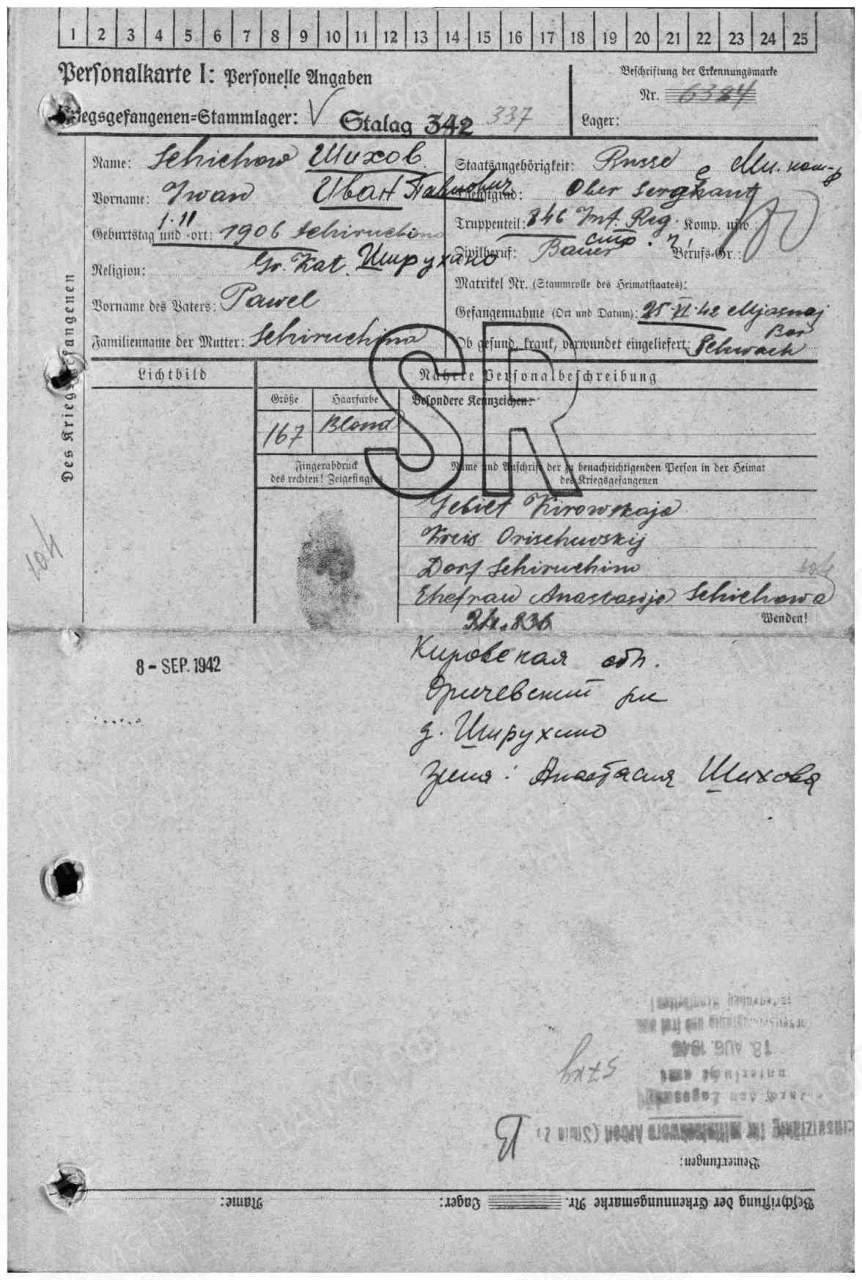 1 2 3 4 5 6 7 8 9 10 11 12 13 14 15 16 17 18 19 20 21 22 23 24 25
Personalkarte I: Personelle Angaben
Kriegsgefangenen-Stammlager: V Stalag 342 337
Beschriftung der Erkennungsmarke
Nr. 6324
Lager:
Des Kriegsgefangenen
Name: Schichow Шихов
Vorname: Iwan Иван Павлович
Geburtstag und -ort: 1.11 1906 Schiruchino
Religion: Gr. Kat. Ширухино
Vorname des Vaters: Pawel
Familienname der Mutter: Schiruchina
Staatsangehörigkeit: Russe
Dienstgrad: Ober Sergeant
Truppenteil: 846 Inf. Reg. Komp. usw.:
Zivilberuf: Bauer Berufs-Gr.:
Matrikel Nr. (Stammrolle des Heimatstaates):
Gefangennahme (Ort und Datum): 25.VI.42 Mjasnoj
Bor
Ob gesund, krank, verwundet eingeliefert: Schwach
Lichtbild
Nähere Personalbeschreibung
Größe Haarfarbe Besondere Kennzeichen:
167 Blond
SR
Fingerabdruck
des rechten! Zeigefingers
Name und Anschrift der zu benachrichtigenden Person in der Heimat
des Kriegsgefangenen
Gebiet Kirowskaja
Kreis Oritschewskij
Dorf Schiruchino
Ehefrau Anastasija Schichowa
Wenden!
104
8 - SEP. 1942
Кировская обл.
Оричевский рн
д. Ширухино
жена: Анастасия Шихова
18. AUG. 1942
Bemerkungen:
Beschriftung der Erkennungsmarke Nr. Lager: Name: